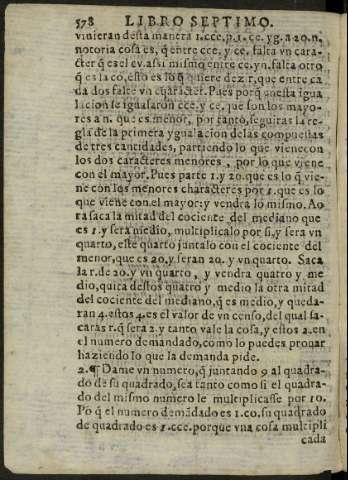 578 LIBRO SEPTIMO.
vinieran desta manera 1.cce.p.1.ce.yg.a 20.n.
notoria cosa es, q̃ entre cce. y ce. falta vn cara-
cter q̃ es el ev. assi mismo entre ce. yn. falta otro
q̃ es la co, esto es lo q̃ quiere dezir, que entre ca
da dos falte vn character. Pues porq̃ en esta igua
lacion se igualaron cce. y ce. que son los mayo-
res a n. que es menor, por tanto, seguiras la re-
gla de la primera ygualacion de las compuestas
de tres cantidades, partiendo lo que viene con
los dos caracteres menores, por lo que viene
con el mayor. Pues parte 1. y 20. que es lo q̃ vie-
ne con los menores characteres por 1. que es lo
que viene con el mayor: y vendra lo mismo. Ao
ra saca la mitad del cociente del mediano que
es 1. y sera medio, multiplicalo por si, y sera vn
quarto, este quarto juntalo con el cociente del
menor, que es 20. y seran 20. y vn quarto. Saca
la r. de 20. y vn quarto, y vendra quatro y me
dio, quita destos quatro y medio la otra mitad
del cociente del mediano, q̃ es medio, y queda-
ran 4. estos 4. es el valor de vn censo, del qual sa-
caràs r. q̃ sera 2. y tanto vale la cosa, y estos 2. en
el numero demandado, como lo puedes prouar
haziendo lo que la demanda pide.
2.¶ Dame vn numero, q̃ juntando 9 al quadra-
do de su quadrado, sea tanto como si el quadra-
do del mismo numero le multiplicasse por 10.
Põ q̃ el numero demãdado es 1.co. su quadrado
de quadrado es 1.cce. porque vna cosa multipli
cada